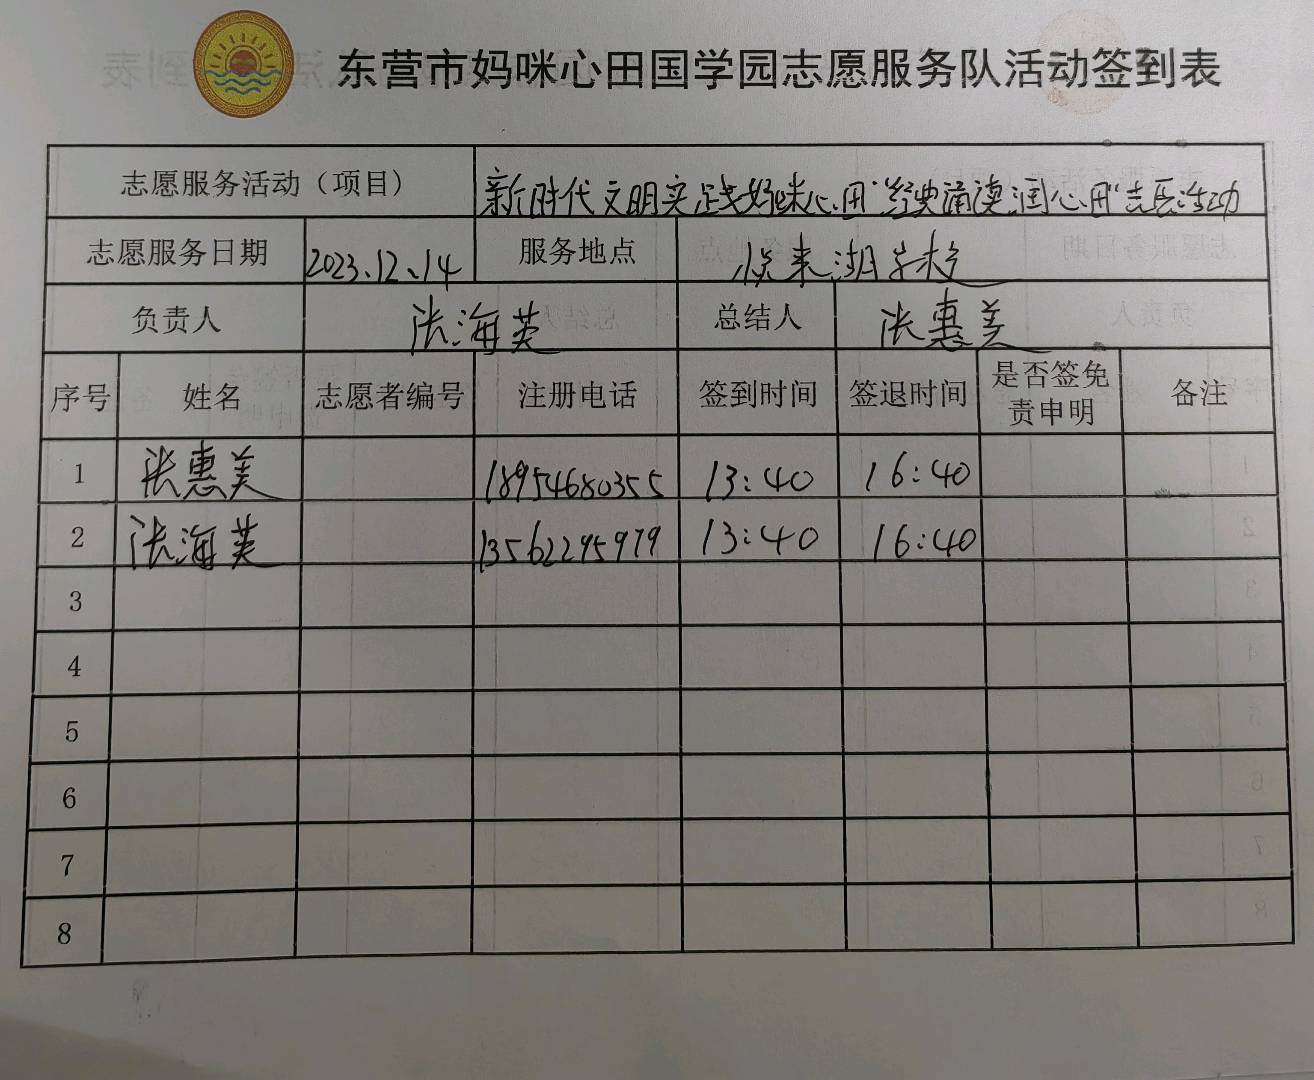 东营市妈咪心田国学园志愿服务队活动签到表
志愿服务活动（项目） 新时代文明实践妈咪心田“经典诵读润心田”志愿活动
志愿服务日期 2023.12.14 服务地点 悦来湖学校
负责人 张海英 总结人 张惠美
序号 姓名 志愿者编号 注册电话 签到时间 签退时间 是否签免责申明 备注
1 张惠美 18954680355 13:40 16:40
2 张海英 13562295979 13:40 16:40
3
4
5
6
7
8